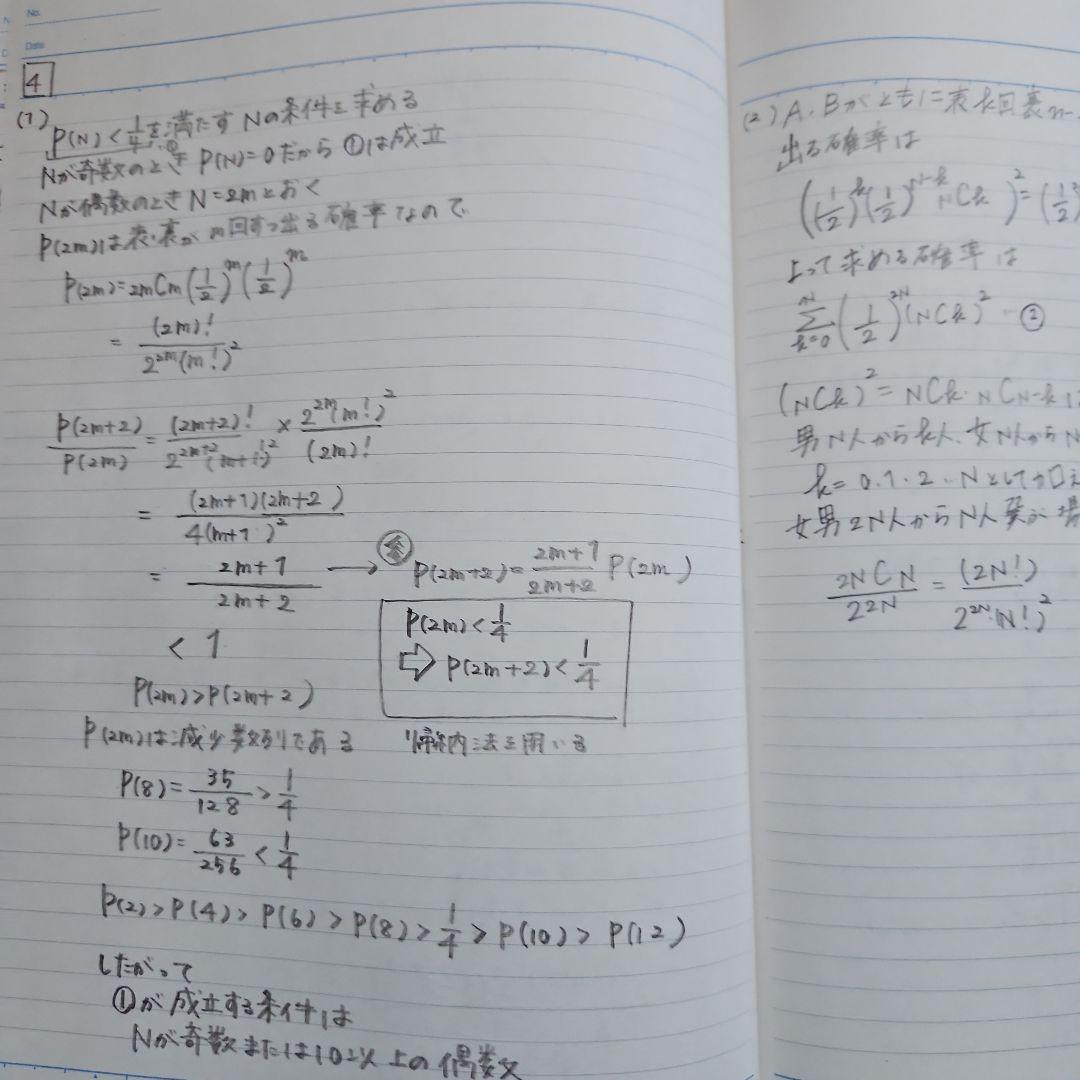 No.
Date
4
(1)
P(N) < 1/4 を満たす Nの条件を求める
Nが奇数のとき P(N)=0だから ①は成立
Nが偶数のとき N=2mとおく
P(2m)は表・裏が m回ずつ出る確率なので
P(2m)=2mCm(1/2)^m(1/2)^m
= (2m)! / 2^2m(m!)^2
P(2m+2)/P(2m) = (2m+2)! / 2^2m+2 (m+1)!^2 × 2^2m(m!)^2 / (2m)!
= (2m+1)(2m+2) / 4(m+1)^2
= 2m+1 / 2m+2 → P(2m+2)= 2m+1 / 2m+2 P(2m)
< 1
P(2m)<1/4
⇨ P(2m+2)<1/4
P(2m)>P(2m+2)
P(2m)は減少数列である
帰納法を用いる
P(8)= 35/128 > 1/4
P(10)= 63/256 < 1/4
P(2)>P(4)>P(6)>P(8)>1/4>P(10)>P(12)
したがって
①が成立する条件は
Nが奇数または10以上の偶数
(2) A、Bがともに表k回裏n-
出る確率は
((1/2)^k(1/2)^n-k NCk)^2=(1/2)
よって求める確率は
Σ N k=0 (1/2)^2N(NCk)^2 ②
(NCk)^2 = NCk・NCN-kは
男N人からk人、女N人からN
k=0.1.2..Nとして加え
女男2N人からN人選ぶ場
2NCN / 2^2N = (2N!) / 2^2N・(N!)^2